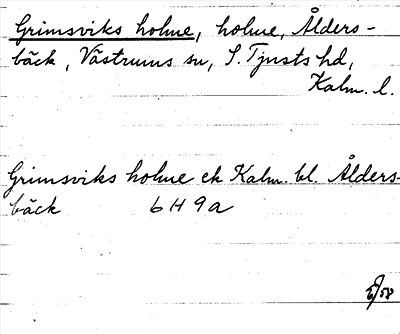 Grimsviks holme, holme, Ålders-
bäck, Västrums sn, S. Tjusts hd,
Kalm. l.
Grimsviks holme ek Kalm. bl. Ålders-
bäck 6H9a
/58